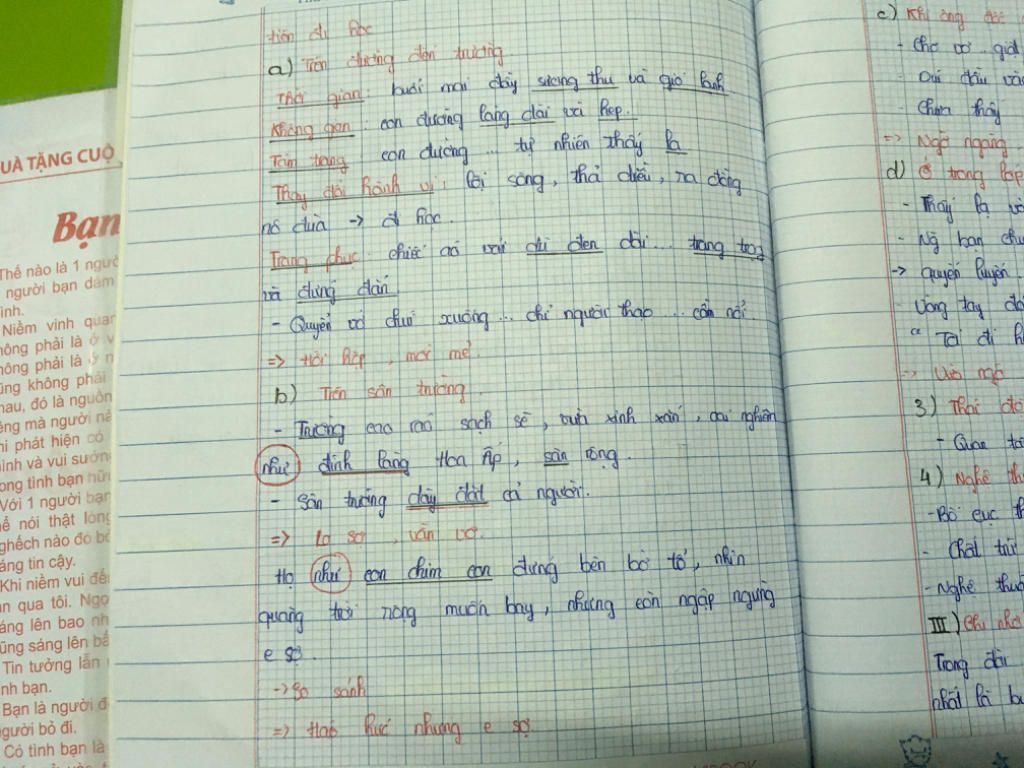 tiên đi học
a) Trên đường đến trường
Thời gian: buổi mai đầy sương thu và gió lạnh
Không gian: con đường làng dài và hẹp.
Tâm trạng con đường ... tự nhiên thấy lạ
Thay đổi hành vi: lội sông, thả diều, ra đồng
nô đùa -> đi học.
Trang phục: chiếc áo vải dù đen dài... trang trọng
và đứng đắn
- Quyển vở chúi xuống... chỉ người thạo ... cầm nổi.
=> Hồi hộp, mới mẻ.
b) Trên sân trường.
- Trường cao ráo sạch sẽ, vừa xinh xắn, oai nghiêm
như đình làng Hòa Ấp, sân rộng.
- Sân trường dày đặc cả người.
=> Lo sợ, vẩn vơ.
Họ như con chim con đứng bên bờ tổ, nhìn
quãng trời rộng muốn bay, nhưng còn ngập ngừng
e sợ.
-> So sánh
=> Háo hức nhưng e sợ.
c) Khi ông đốc
- Cho vở giật
- Dúi đầu vào
- Chưa thấy
=> Ngỡ ngàng
d) Ở trong lớp
- Thấy lạ và
- Ng bạn chưa
-> quyến luyến.
- Vòng tay
"Tôi đi h
3) Thái độ
- Quan tâ
4) Nghệ th
- Bố cục th
- Chất trữ
- Nghệ thuậ
III) Ghi nhớ
Trong đời
nhất là bu
UÀ TẶNG CUỘ
Bạn
Thế nào là 1 ngườ
người bạn dám
ình.
Niềm vinh quan
hông phải là ở v
hông phải là ở n
ũng không phải
hau, đó là nguồn
êng mà người nà
hi phát hiện có
ình và vui sướng
ong tình bạn hữu
Với 1 người bạn
hể nói thật lòng
ghếch nào đó bở
áng tin cậy.
Khi niềm vui đế
n qua tôi. Ngọ
áng lên bao nh
ũng sáng lên bấ
Tin tưởng lẫn
nh bạn.
Bạn là người đ
gười bỏ đi.
Có tình bạn là